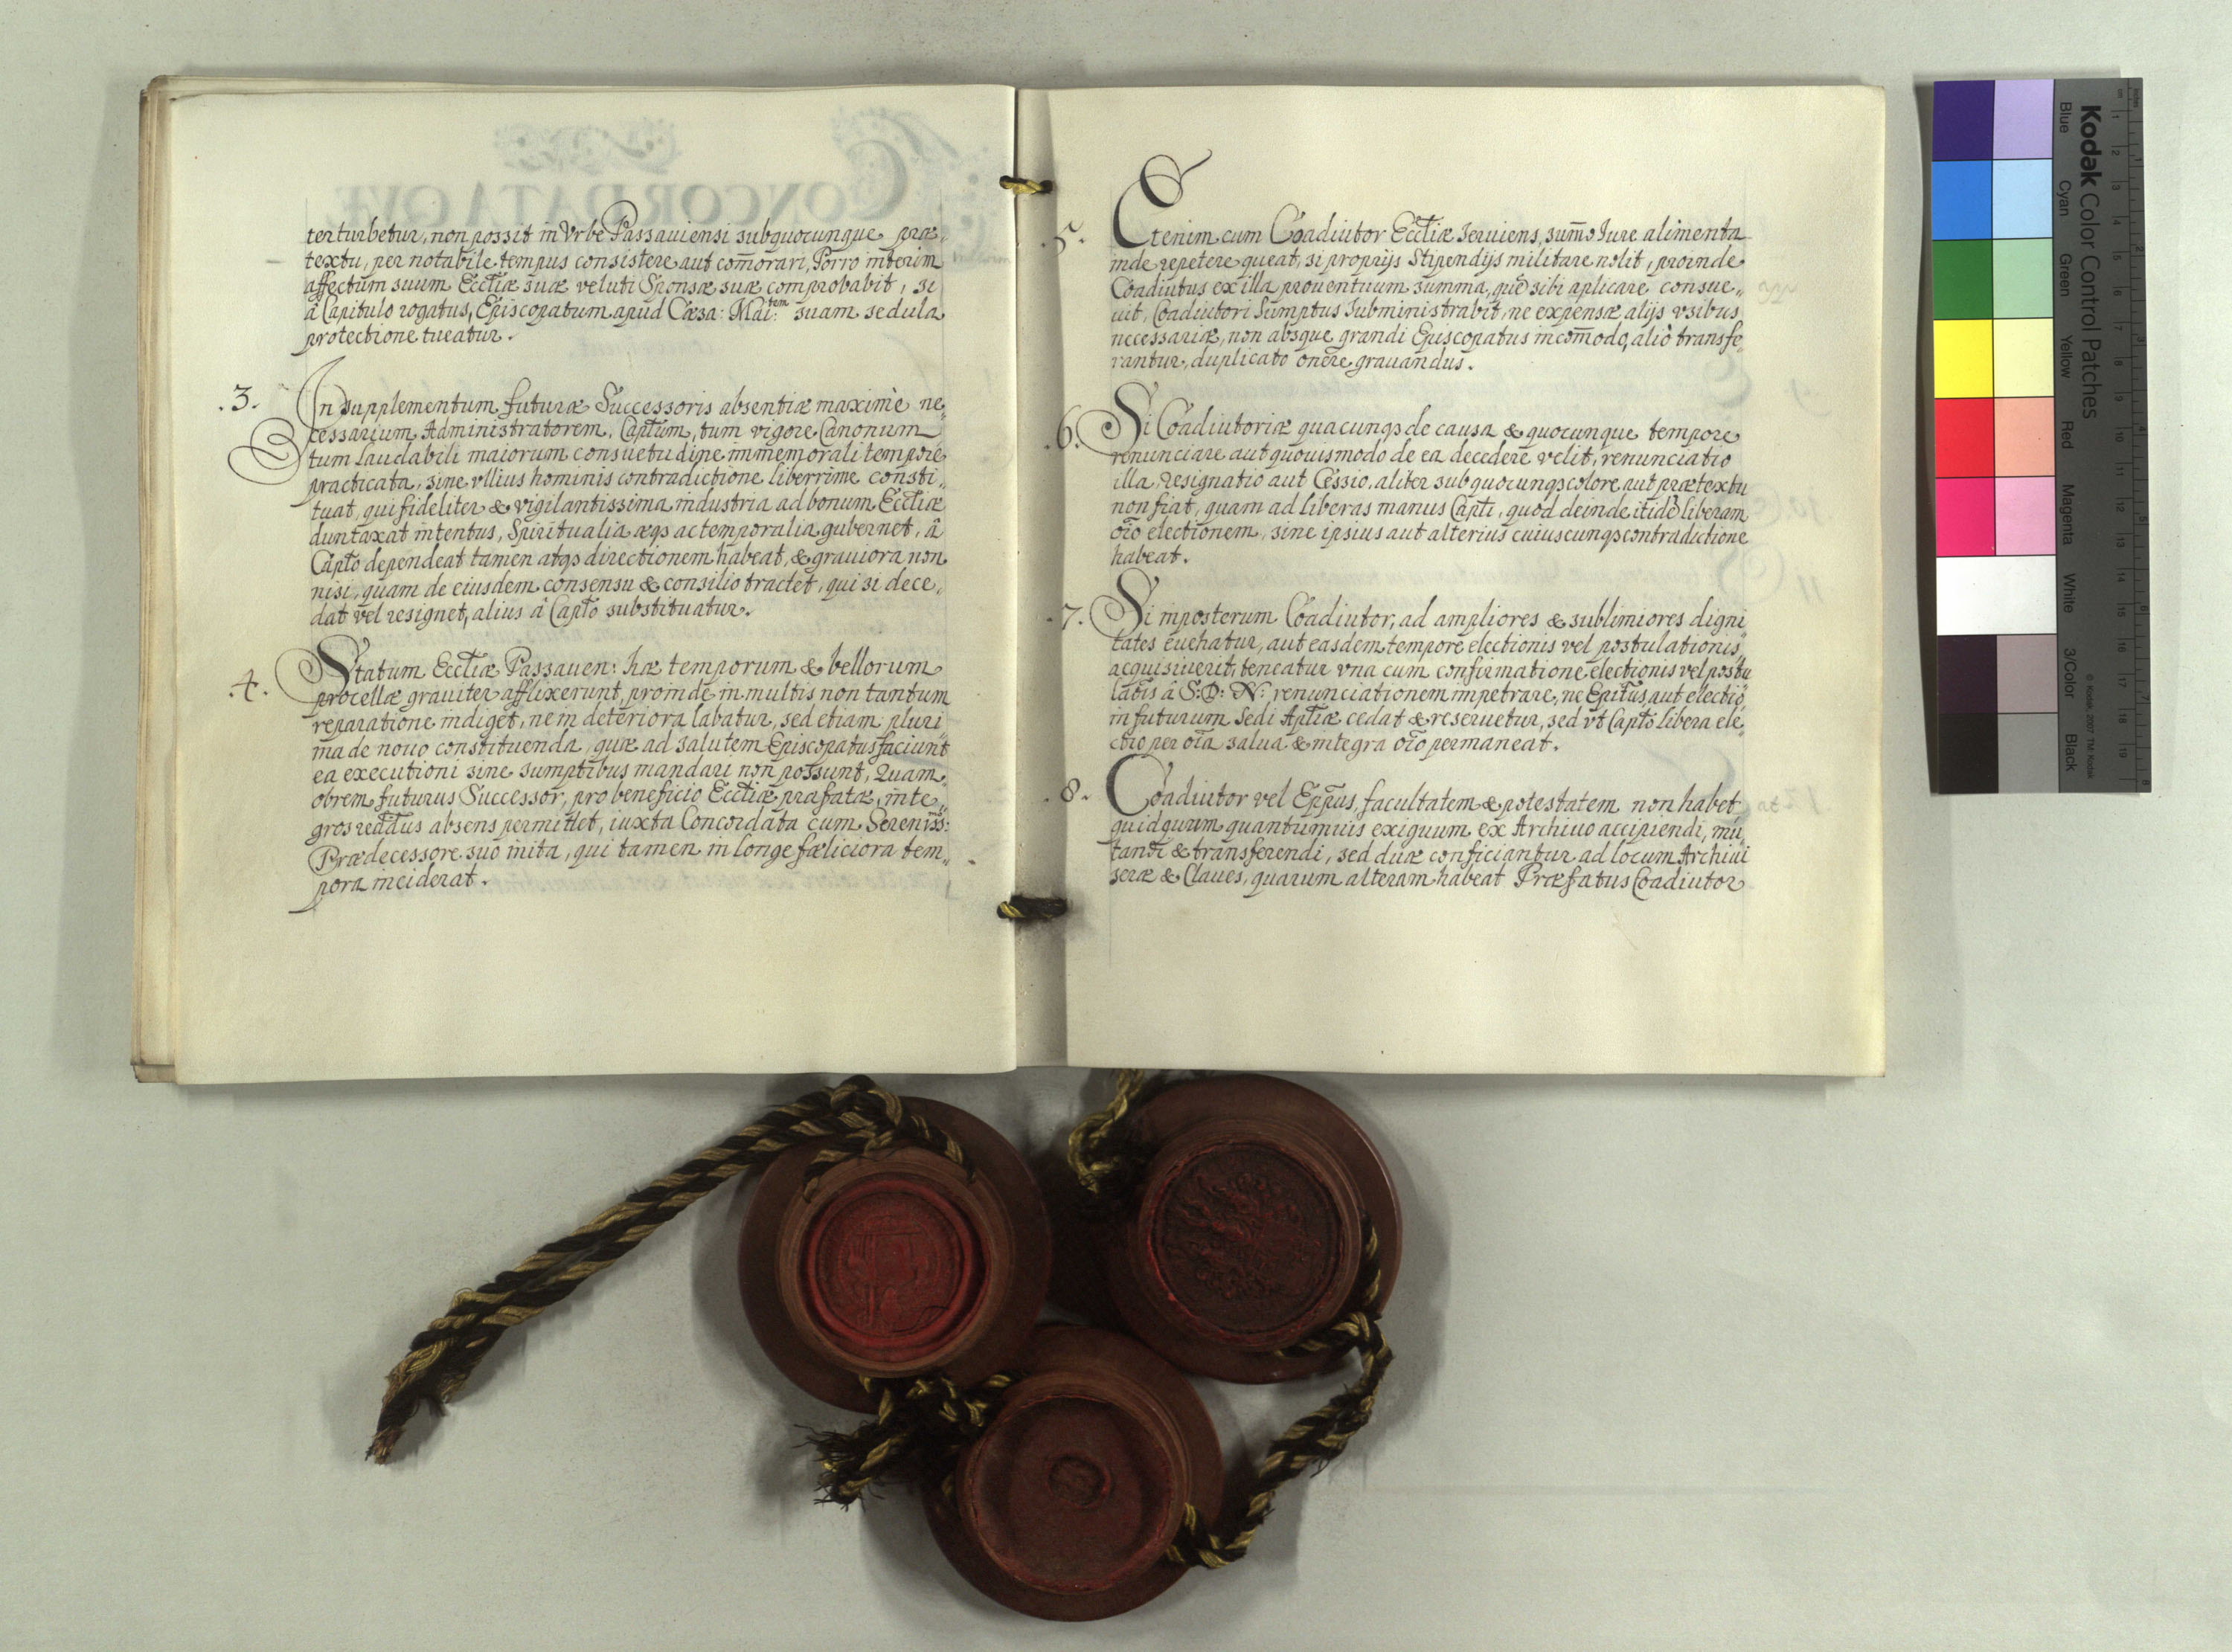 terturbetur, non possit in Vrbe Passauiensi sub quocunque præ„
textu, per notabile tempus consistere aut com̄orari, Porro interim
affectum suum Eccłiæ suæ veluti Sponsæ suæ comprobabit, si
â Capitulo rogatus, Episcopatum apud Cæsa: Mai:tem suam sedula
protectione tueatur.
.3. In supplementum futuræ Successoris absentiæ maximè ne„
cessarium Administratorem, Capłum, tum vigore Canonum
tum laudabili maiorum consuetudine immemorali tempore
practicata, sine vllius hominis contradictione liberrime consti„
tuat, qui fideliter & vigilantissima industria ad bonum Eccłiæ
duntaxat intentus, Spiritualia æqꝫ ac temporalia gubernet, â
Capło dependeat tamen atqꝫ directionem habeat, & grauiora non
nisi, quam de eiusdem consensu & consilio tractet, qui si dece„
dat vel resignet, alius â Capło substituatur.
.4. Statum Eccłiæ Passauen: hæ temporum & bellorum
procellæ grauiter afflixerunt, proinde in multis non tantum
reparatione indiget, ne in deteriora labatur, sed etiam pluri„
ma de nouo constituenda, quæ ad salutem Episcopatus faciunt
ea executioni sine sumptibus mandari non possunt, Quam„
obrem futurus Successor, pro beneficio Eccłiæ præfatæ, inte„
gros redditus absens permittet, iuxta Concordata cum Sereniss:mo
Prædecessore suo inita, qui tamen in longe fæliciora tem„
pora inciderat.
.5. Etenim cum Coadiutor Eccłiæ seruiens, sum̄o Iure alimenta
inde repetere queat, si proprijs Stipendijs militare nolit, proinde
Coadiutus ex illa prouentuum summa, quē sibi aplicare consue„
uit, Coadiutori Sumptus Subministrabit, ne expensæ alijs vsibus
necessariæ, non absque grandi Episcopatus incom̄odo, aliò transfe„
rantur, duplicato onere grauandus.
.6. Si Coadiutoriæ quacunqꝫ de causa & quocunque tempore
renunciare aut quouismodo de ea decedere velit, renunciatio
illa, resignatio aut Cessio, aliter sub quocunqꝫ colore aut prætextu
non fiat, quam ad liberas manus Capłi, quod deinde itidē liberam
oīo electionem, sine ipsius aut alterius cuiuscunqꝫ contradictione
habeat.
.7. Si imposterum Coadiutor, ad ampliores & sublimiores digni„
tates euehatur, aut easdem tempore electionis vel postulationis,
acquisiuerit, teneatur vna cum confirmatione electionis vel postu„
latīs â S: D: N: renunciationem impetrare, ne Ep̄itus, aut electio
in futurum Sedi Apłiæ cedat & reseruetur, sed vt Capło libera ele„
ctio per oīa salua & integra oīo permaneat.
.8. Coadiutor vel Ep̄pus, facultatem & potestatem non habet
quidquam quantumuis exiguum ex Archiuo accipiendi, mu„
tandi & transferendi, sed duæ conficiantur ad locum Archiui
seræ & Claues, quarum alteram habeat Præfatus Coadiutor
Kodak Color Control Patches
Blue
Cyan
Green
Yellow
Red
Magenta
White
3/Color
Black
© Kodak, 2007 TM: Kodak